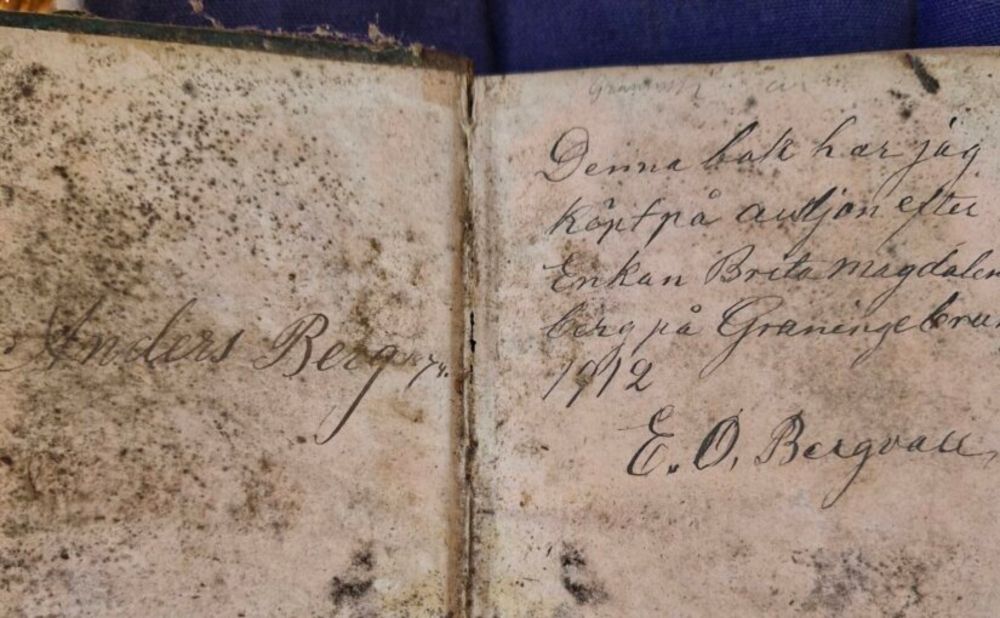 Anders Berg
Denna bok har jag
köpt på auktjon efter
Enkan Brita Magdalen
berg på Graninge bru
1912
E. O. Bergvall